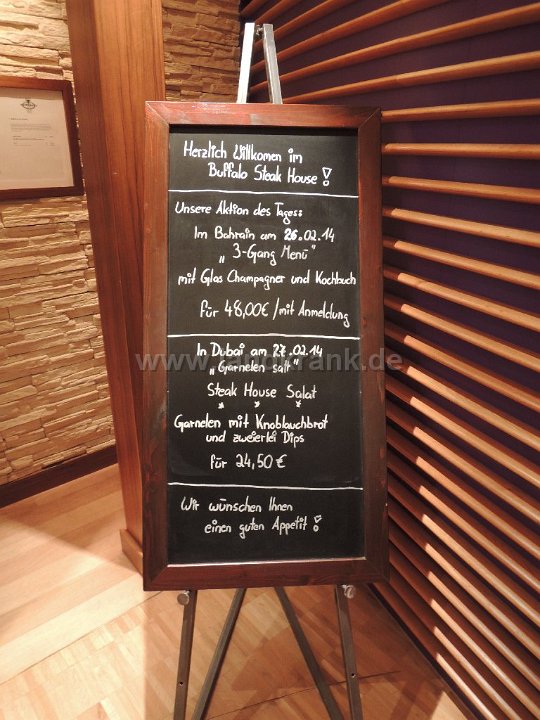 Herzlich Willkommen im
Buffalo Steak House !
Unsere Aktion des Tages:
Im Bahrain am 26.02.14
„3-Gang Menü"
mit Glas Champagner und Kochbuch
für 48,00€ / mit Anmeldung
In Dubai am 27.02.14
„Garnelen satt"
Steak House Salat
* * *
Garnelen mit Knoblauchbrot
und zweierlei Dips
für 24,50 €
Wir wünschen Ihnen
einen guten Appetit !